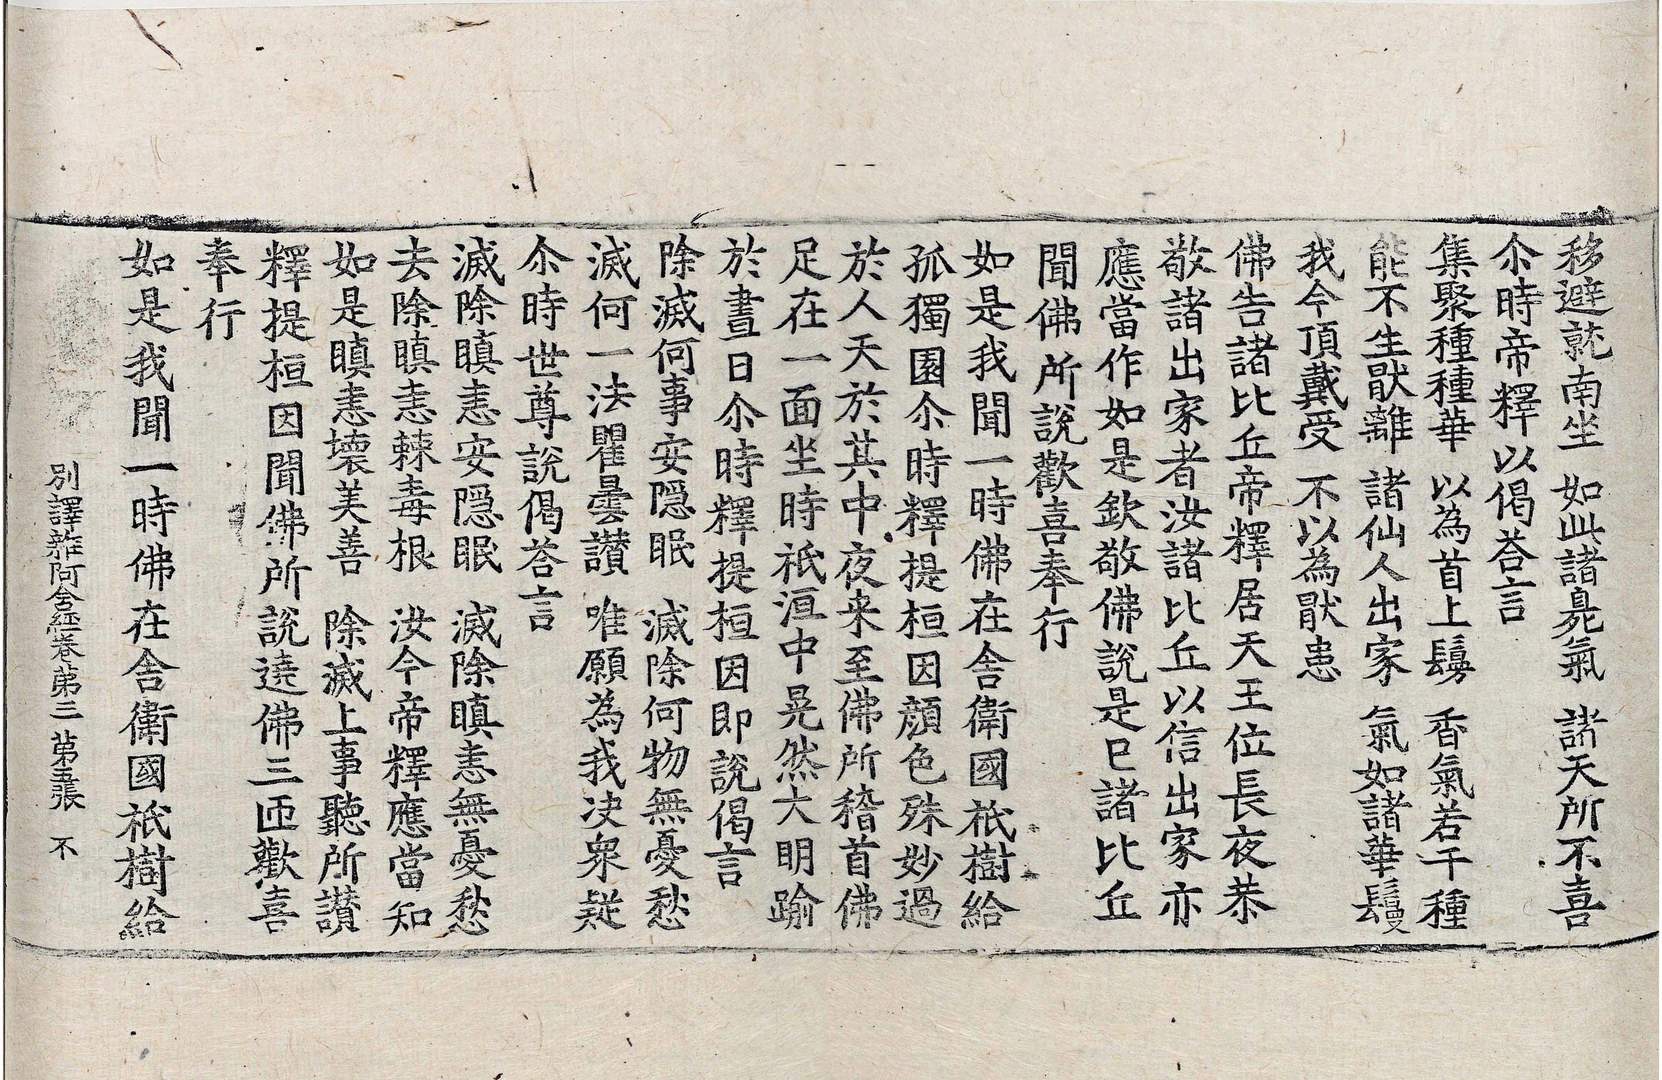 移避就南坐　如此諸臭氣　諸天所不喜
尒時帝釋以偈荅言
集聚種種華　以為首上鬘　香氣若干種
能不生猒離　諸仙人出家　氣如諸華鬘
我今頂戴受　不以為猒患
佛告諸比丘帝釋居天王位長夜恭
敬諸出家者汝諸比丘以信出家亦
應當作如是欽敬佛說是已諸比丘
聞佛所說歡喜奉行
如是我聞一時佛在舍衛國祇樹給
孤獨園尒時釋提桓因顏色殊妙過
於人天於其中夜来至佛所稽首佛
足在一面坐時祇洹中晃然大明踰
於晝日尒時釋提桓因即說偈言
除滅何事安隱眠　滅除何物無憂愁
滅何一法瞿曇讚　唯願為我决衆疑
尒時世尊說偈荅言
滅除瞋恚安隱眠　滅除瞋恚無憂愁
去除瞋恚棘毒根　汝今帝釋應當知
如是瞋恚壞美善　除滅上事聽所讃
釋提桓因聞佛所說遶佛三匝歡喜
奉行
如是我聞一時佛在舍衛國祇樹給
別譯雜阿含經卷第三　第五張　不